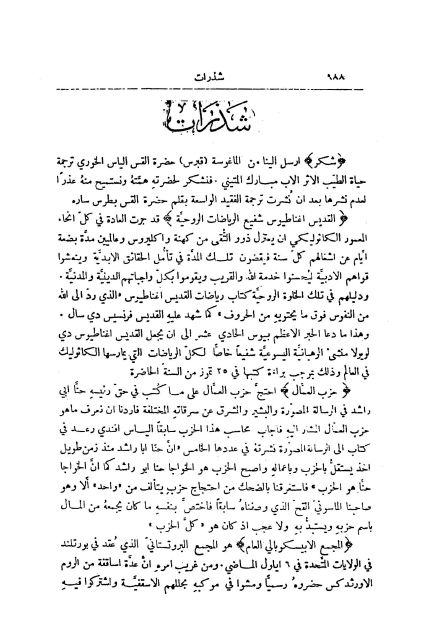 ٩٨٨ شذرات
شذرات
﴿شكر﴾ ارسل الينا من الماغوسة (قبرس) حضرة القس الياس الخوري ترجمة
حياة الطيّب الاثر الاب مبارك المتيني . فنشكر لحضرته همَّتهُ ونستميح منهُ عذرًا
لعدم نشرها بعد ان نُشرت ترجمة الفقيد الواسعة بقلم حضرة القس بطرس ساره
﴿القديس اغناطيوس شفيع الرياضات الروحيَّة﴾ قد جرت العادة في كلّ انحاء
المعمور الكاثوليكي ان يعتزل ذوو التُّقى من كهنة واكليروس وعالميين مدة بضعة
ايَّام عن اشغالهم كلّ سنة فيقضون تلك المدَّة في تأمّل الحقائق الابديَّة وينعشوا
قواهم الادبيَّة ليُحسنوا خدمة الله والقريب ويقوموا بكلّ واجباتهم الدينيَّة والمدنيَّة .
ودليلهم في تلك الخلوة الروحيَّة كتاب رياضات القديس اغناطيوس «الذي ردّ الى الله
من النفوس فوق ما يحتويهِ من الحروف» كما شهد عليهِ القديس فرنسيس دي سال .
وهذا ما دعا الحبر الاعظم بيوس الحادي عشر الى ان يجعل القديس اغناطيوس دي
لويولا منشئ الرهبانيَّة اليسوعيَّة شفيعًا خاصًّا لكلّ الرياضات التي يمارسها الكاثوليك
في العالم وذلك بموجب براءة كتبها في ٢٥ تموز من السنة الحاضرة
﴿حزب العمَّال﴾ احتجَّ حزب العمَّال على ما كتبت في حقّ رئيسهِ حنَّا ابي
راشد في الرسالة المصوَّرة والبشير والشرق عن سرقاتهِ المختلفة فاردنا ان نعرف ماهو
حزب العمَّال المشار اليهِ فاجاب محاسب هذا الحزب سابقًا الياس افندي رعد في
كتاب الى الرسالة المصوَّرة نشرتهُ في عددها الخامس «انَّ حنا ابا راشد منذ زمن طويل
اخذ يستقلُّ بالحزب وباعمالهِ واصبح الحزب هو الخواجا حنا ابو راشد كما انَّ الخواجا
حنَّا هو الحزب» فاستغرقنا بالضحك من احتجاج حزب يتألف من «واحد» ألا وهو
صاحبنا الماسونيّ القحّ الذي وصفناهُ سابقًا فاختصَّ بنفسهِ ما كان يجمعهُ من المال
باسم حزبهِ ويستبدُّ بهِ ولا عجب اذ كان هو «كلَّ الحزب»
﴿المجمع الابيسكوبالي العام﴾ هو المجمع البروتستانيّ الذي عُقد في بورتلند
في الولايات المتَّحدة في ٦ ايلول الماضي . ومن غريب امرهِ انَّ عدَّة اساقفة من الروم
الاورثدكس حضروهُ رسميًّا ومشوا في موكبهِ بحللهم الاسقفيَّة واشتركوا فيهِ